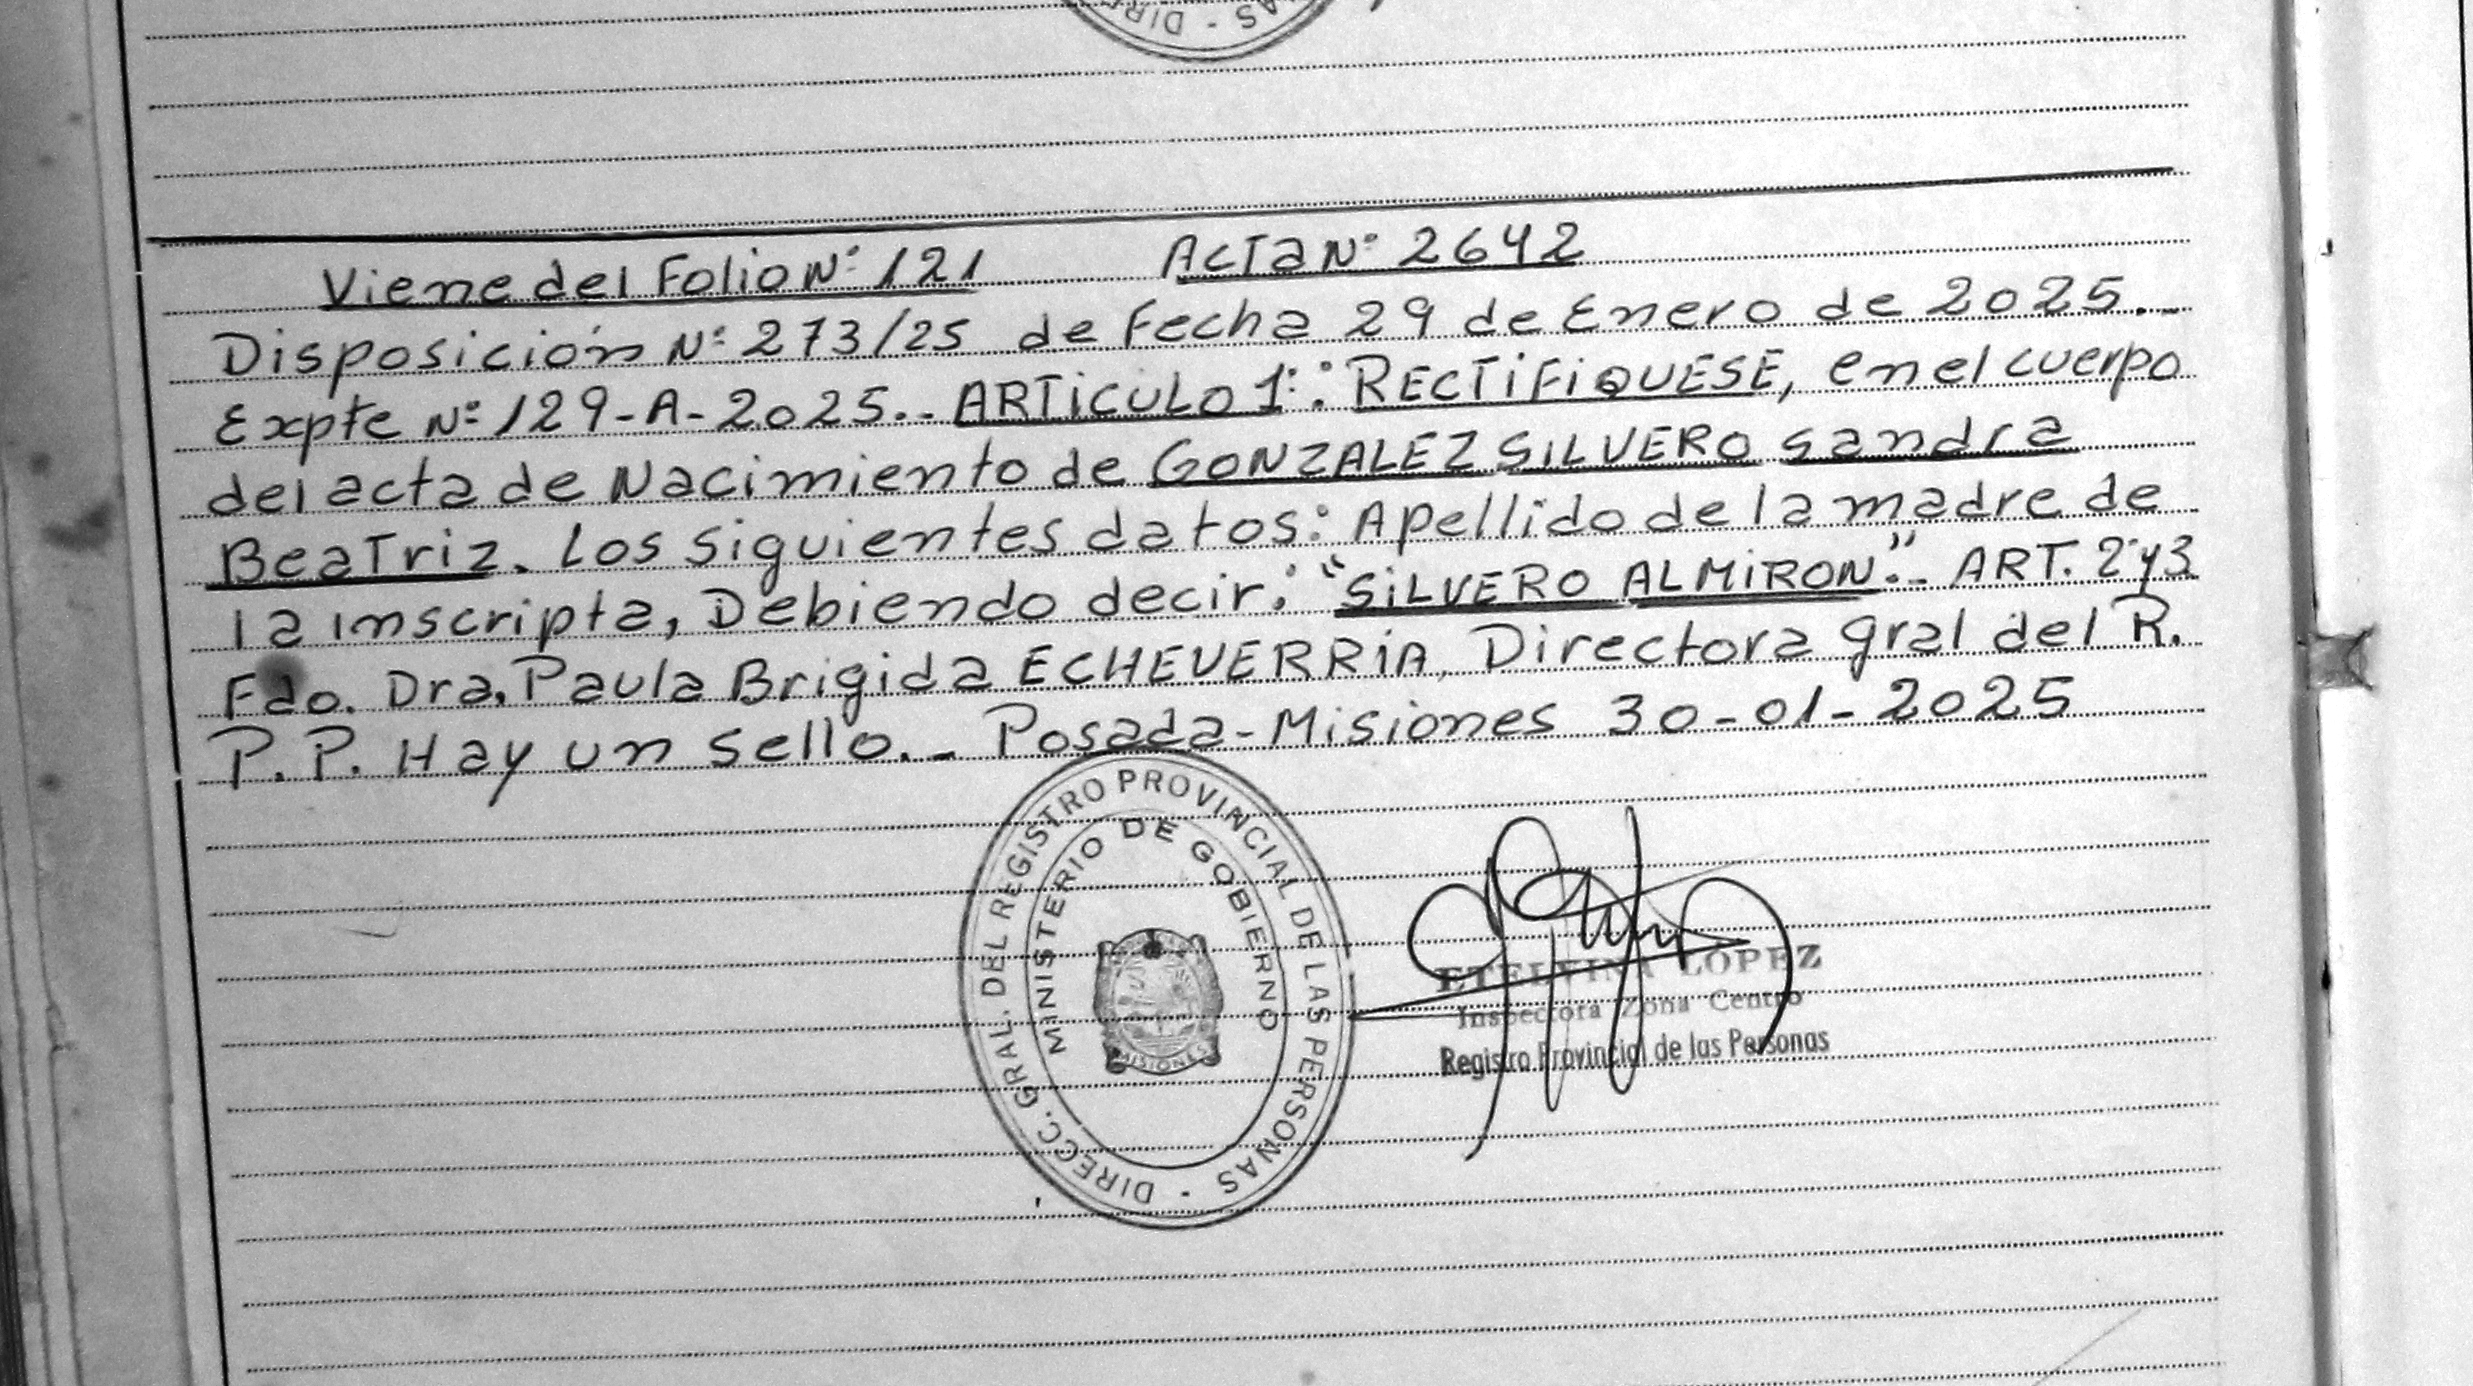 DIRE - AS
Viene del Folio Nº 121 Acta Nº 2642
Disposición Nº 273/25 de Fecha 29 de Enero de 2025.-
Expte Nº 129-A-2025.- ARTICULO 1º: RECTIFIQUESE, en el cuerpo
del acta de Nacimiento de GONZALEZ SILVERO Sandra
Beatriz. Los siguientes datos: Apellido de la madre de
la inscripta, Debiendo decir: "SILVERO ALMIRON".- ART. 2 y 3
Fdo. Dra. Paula Brigida ECHEVERRIA, Directora gral del R.
P.P. Hay un sello.- Posada-Misiones 30-01-2025
DIRECC. GRAL. DEL REGISTRO PROVINCIAL DE LAS PERSONAS -
MINISTERIO DE GOBIERNO
MISIONES
ETELVINA LOPEZ
Inspectora Zona Centro
Registro Provincial de las Personas